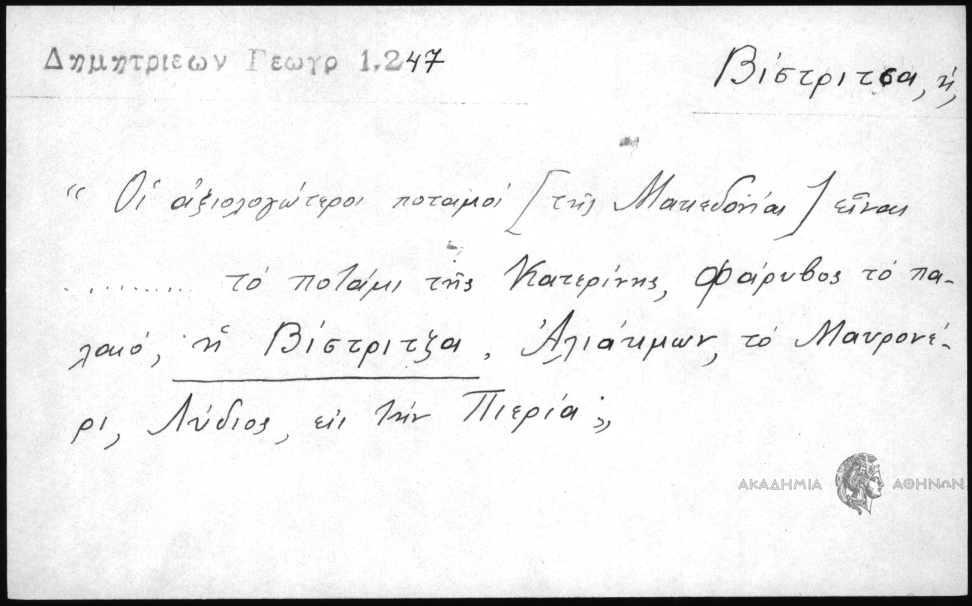 Δημητριεων Γεωγρ 1.247
Βίστριτσα, ἡ,
“ Οἱ ἀξιολογώτεροι ποταμοί [τῆς Μακεδονίας] εἶναι
.......... τό ποτάμι τῆς Κατερίνης, Φάρυβος τό πα-
λαιό, ἡ Βίστριτζα, Ἁλιάκμων, τό Μαυρονέ-
ρι, Λύδιος, εἰς τήν Πιερία”,
ΑΚΑΔΗΜΙΑ ΑΘΗΝΩΝ